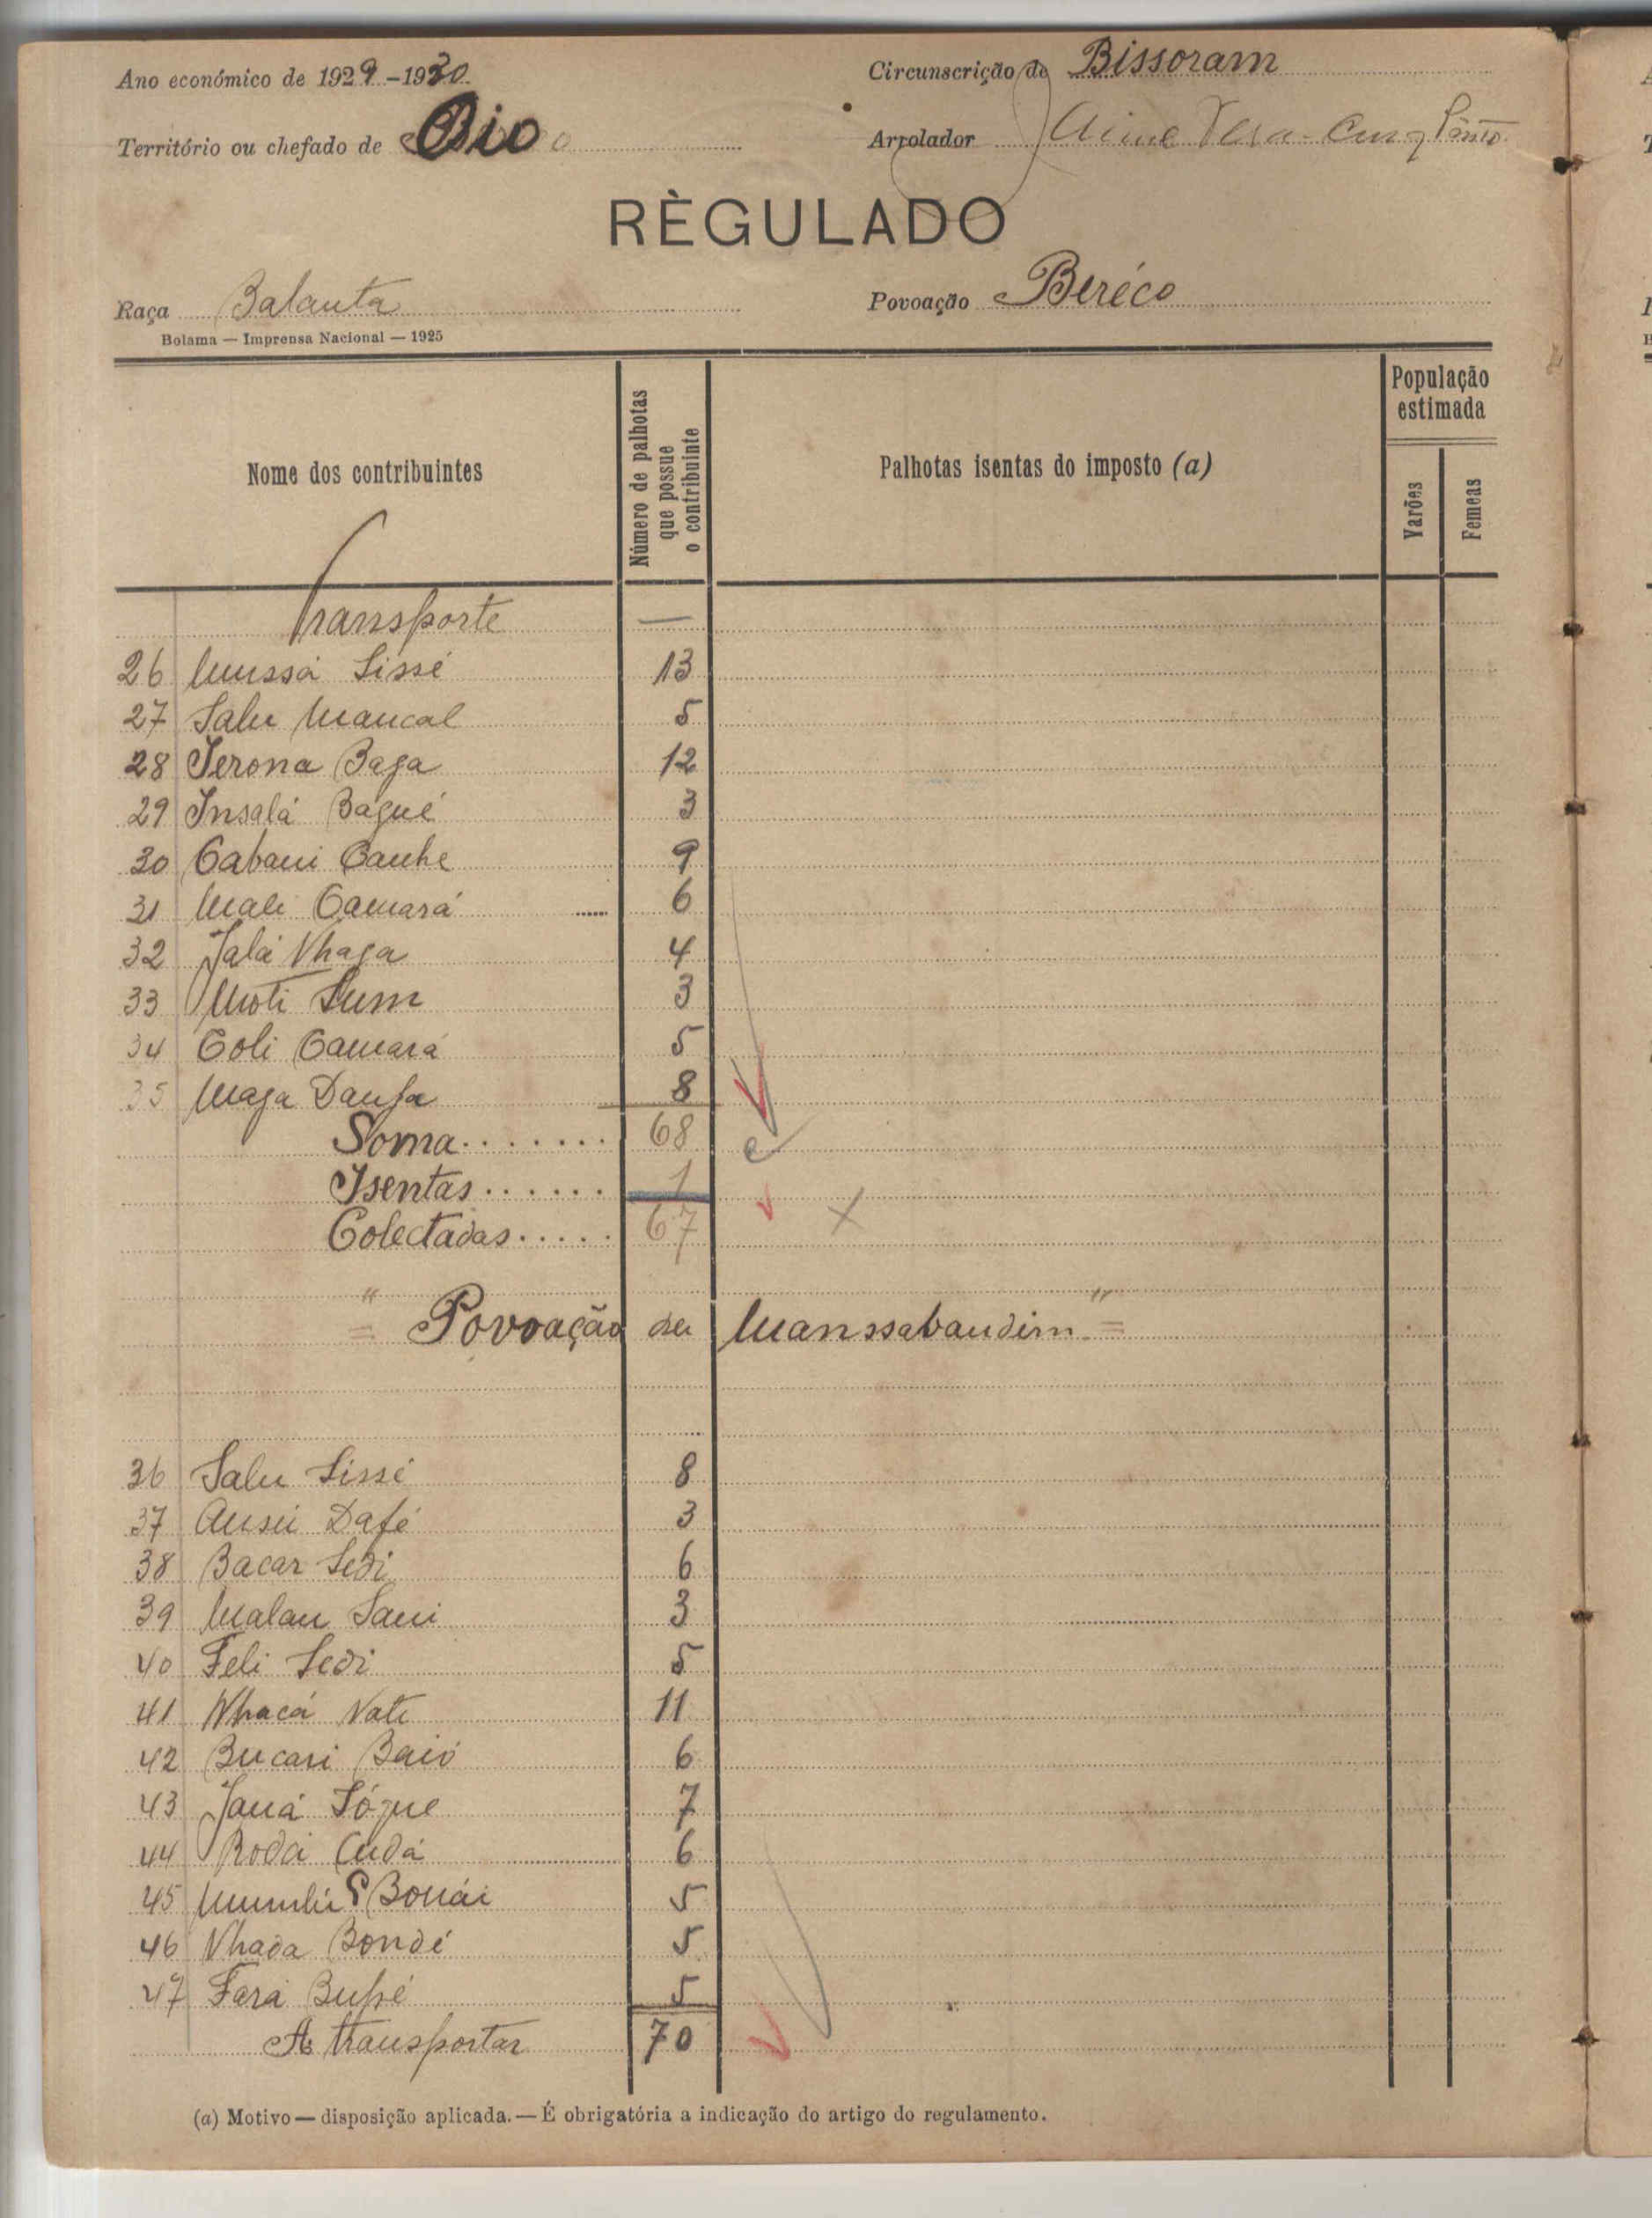 Ano económico de 1929-1930
Circunscrição de Bissoram
Território ou chefado de Oio
Arrolador
RÈGULADO
Raça Balanta
Povoação Beréco
Bolama — Imprensa Nacional — 1925
Nome dos contribuintes
Número de palhotas que possue o contribuinte
Palhotas isentas do imposto (a)
População estimada
Varões
Femeas
Transporte —
26 Mussá Sissé 13
27 Salu Mancal 5
28 Jerona Baga 12
29 Insalá Bagué 3
30 Cabani Canhe 9
31 Mali Camará 6
32 Jalá Nhaga 4
33 Moti Sum 3
34 Coli Camará 5
35 Maga Danfa 8
Soma........ 68
Isentas...... 1
Colectadas..... 67
" "
= Povoação da Manssabandim =
36 Salu Sissé 8
37 Ansú Dafé 3
38 Bacar Sedi 6
39 Malan Sani 3
40 Feli Sedi 5
41 Nhacá Nate 11
42 Bucari Baió 6
43 Janá Sógue 7
44 Rodá Cudá 6
45 Bonái 5
46 Nhada Bondé 5
47 Fará Bupé 5
A transportar 70
(a) Motivo — disposição aplicada. — É obrigatória a indicação do artigo do regulamento.